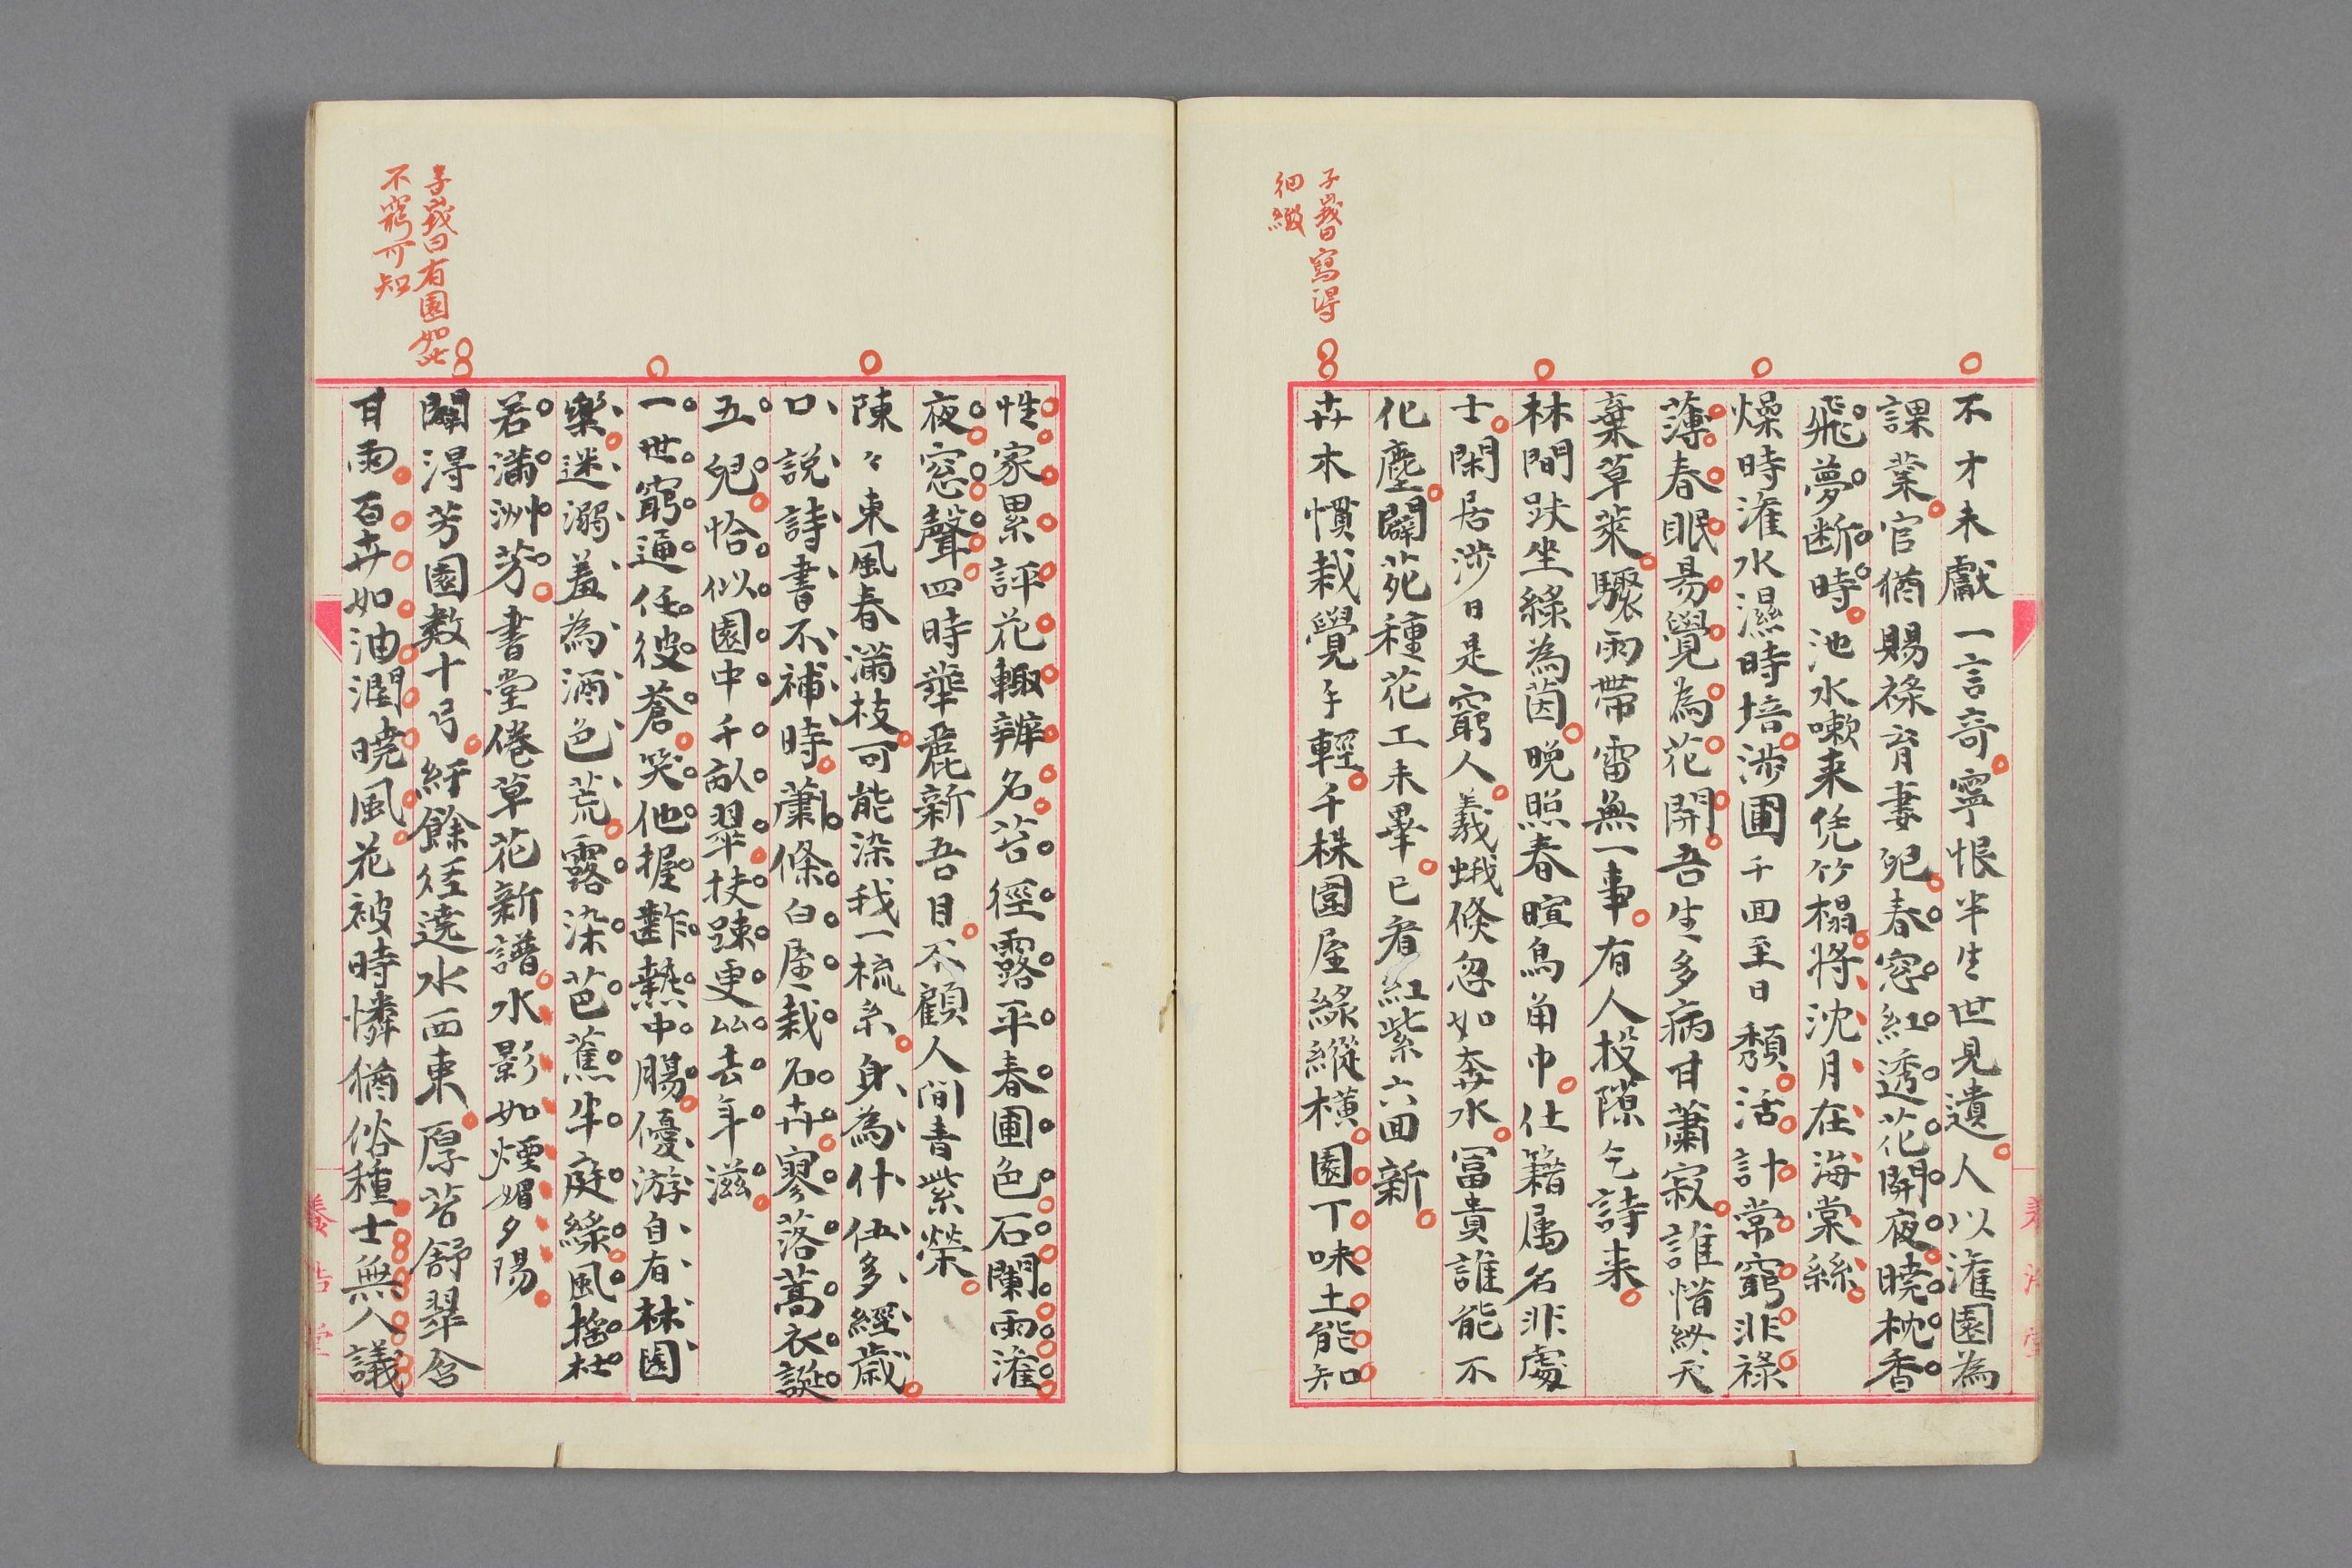 不才未獻一言奇寧恨半生世見遺人以潅園為
課業官猶賜祿育妻児春窓紅透花開夜曉枕香
飛夢断時池水嗽来凭竹榻將沈月在海棠絲
燥時潅水濕時培渉圃千回至日頽活計常窮非祿
薄春眠易覺為花開吾生多病甘蕭寂誰惜終天
棄草萊驟雨帶雷無一事有人投隙乞詩来
林間趺坐綠為茵晚照春暄鳥角巾仕籍属名非處
士閑居渉日是窮人羲蛾倏忽如奔水冨貴誰能不
化塵闢苑種花工未畢已看紅紫六回新
卉木慣栽覺手輕千株園屋綠縱橫園丁味土能知
子峩曰寫得
細緻
性家累評花輙辨名苔徑露平春圃色石闌雨潅
夜窓聲四時華麗新吾目不顧人間青紫榮
陳々東風春滿枝可能染我一梳糸身為什伍多經歳
口說詩書不補時蕭條白屋栽石卉寥落蒿衣誕
五兒恰似園中千畝翠扶踈更比去年滋
一世窮通任彼蒼笑他握齱熱中腸優游自有林園
樂迷溺羞為酒色荒露染芭蕉半庭綠風搖杜
若滿洲芳書堂倦草花新譜水影如煙媚夕陽
闢得芳園數十弓紆餘徑遶水西東厚苔舒翠含
甘雨百卉如油潤曉風花被時憐猶俗種士無人議
子峩曰有園如此
不窮可知